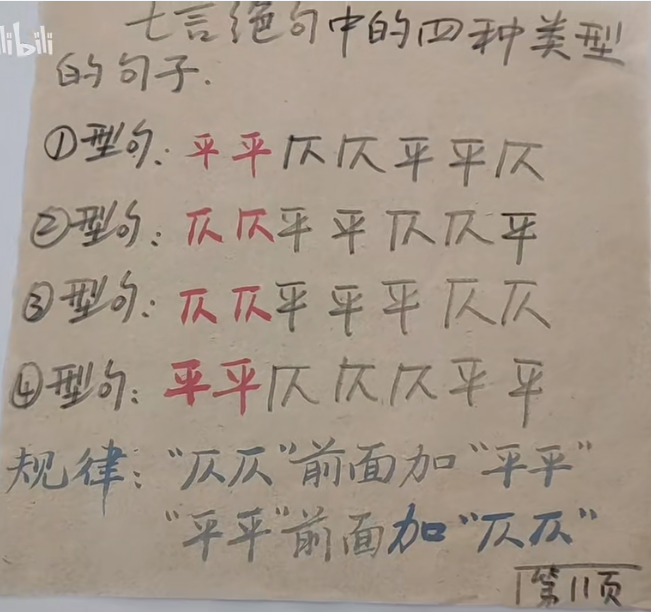 libili
七言绝句中的四种类型
的句子.
①型句:平平仄仄平平仄
②型句:仄仄平平仄仄平
③型句:仄仄平平平仄仄
④型句:平平仄仄仄平平
规律:"仄仄"前面加"平平"
"平平"前面加"仄仄"
第11页